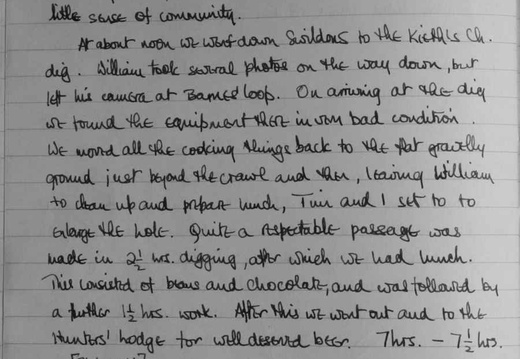 little sense of community.
At about noon we went down Swildons to the Kieth's Ch.
dig. William took several photos on the way down, but
left his camera at Barnes' loop. On arriving at the dig
we found the equipment there in very bad condition.
We moved all the cooking things back to the flat gravelly
ground just beyond the crawl and then, leaving William
to clean up and prepare lunch, Tim and I set to to
enlarge the hole. Quite a respectable passage was
made in 2½ hrs. digging, after which we had lunch.
This consisted of beans and chocolate, and was followed by
a further 1½ hrs. work. After this we went out and to the
Hunters' Lodge for well deserved beer. 7hrs. – 7½ hrs.